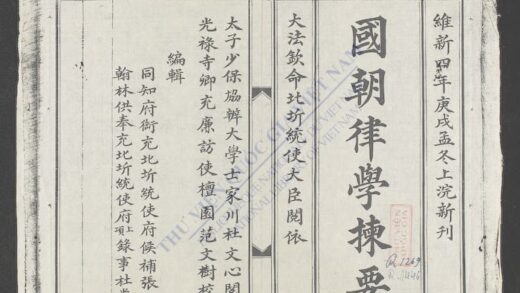 維新四年庚戌孟冬上浣新刊
國朝律學揀要
大法欽命北圻統使大臣閲依
太子少保協辦大學士家川杜文心閲
光祿寺卿充廉訪使檀園范文樹校
編輯
同知府銜充北圻統使府候補張
翰林供奉充北圻統使府項上錄事杜
THƯ VIỆN QUỐC GIA VIỆT NAM
NATIONAL LIBRARY OF VIETNAM
R.1269